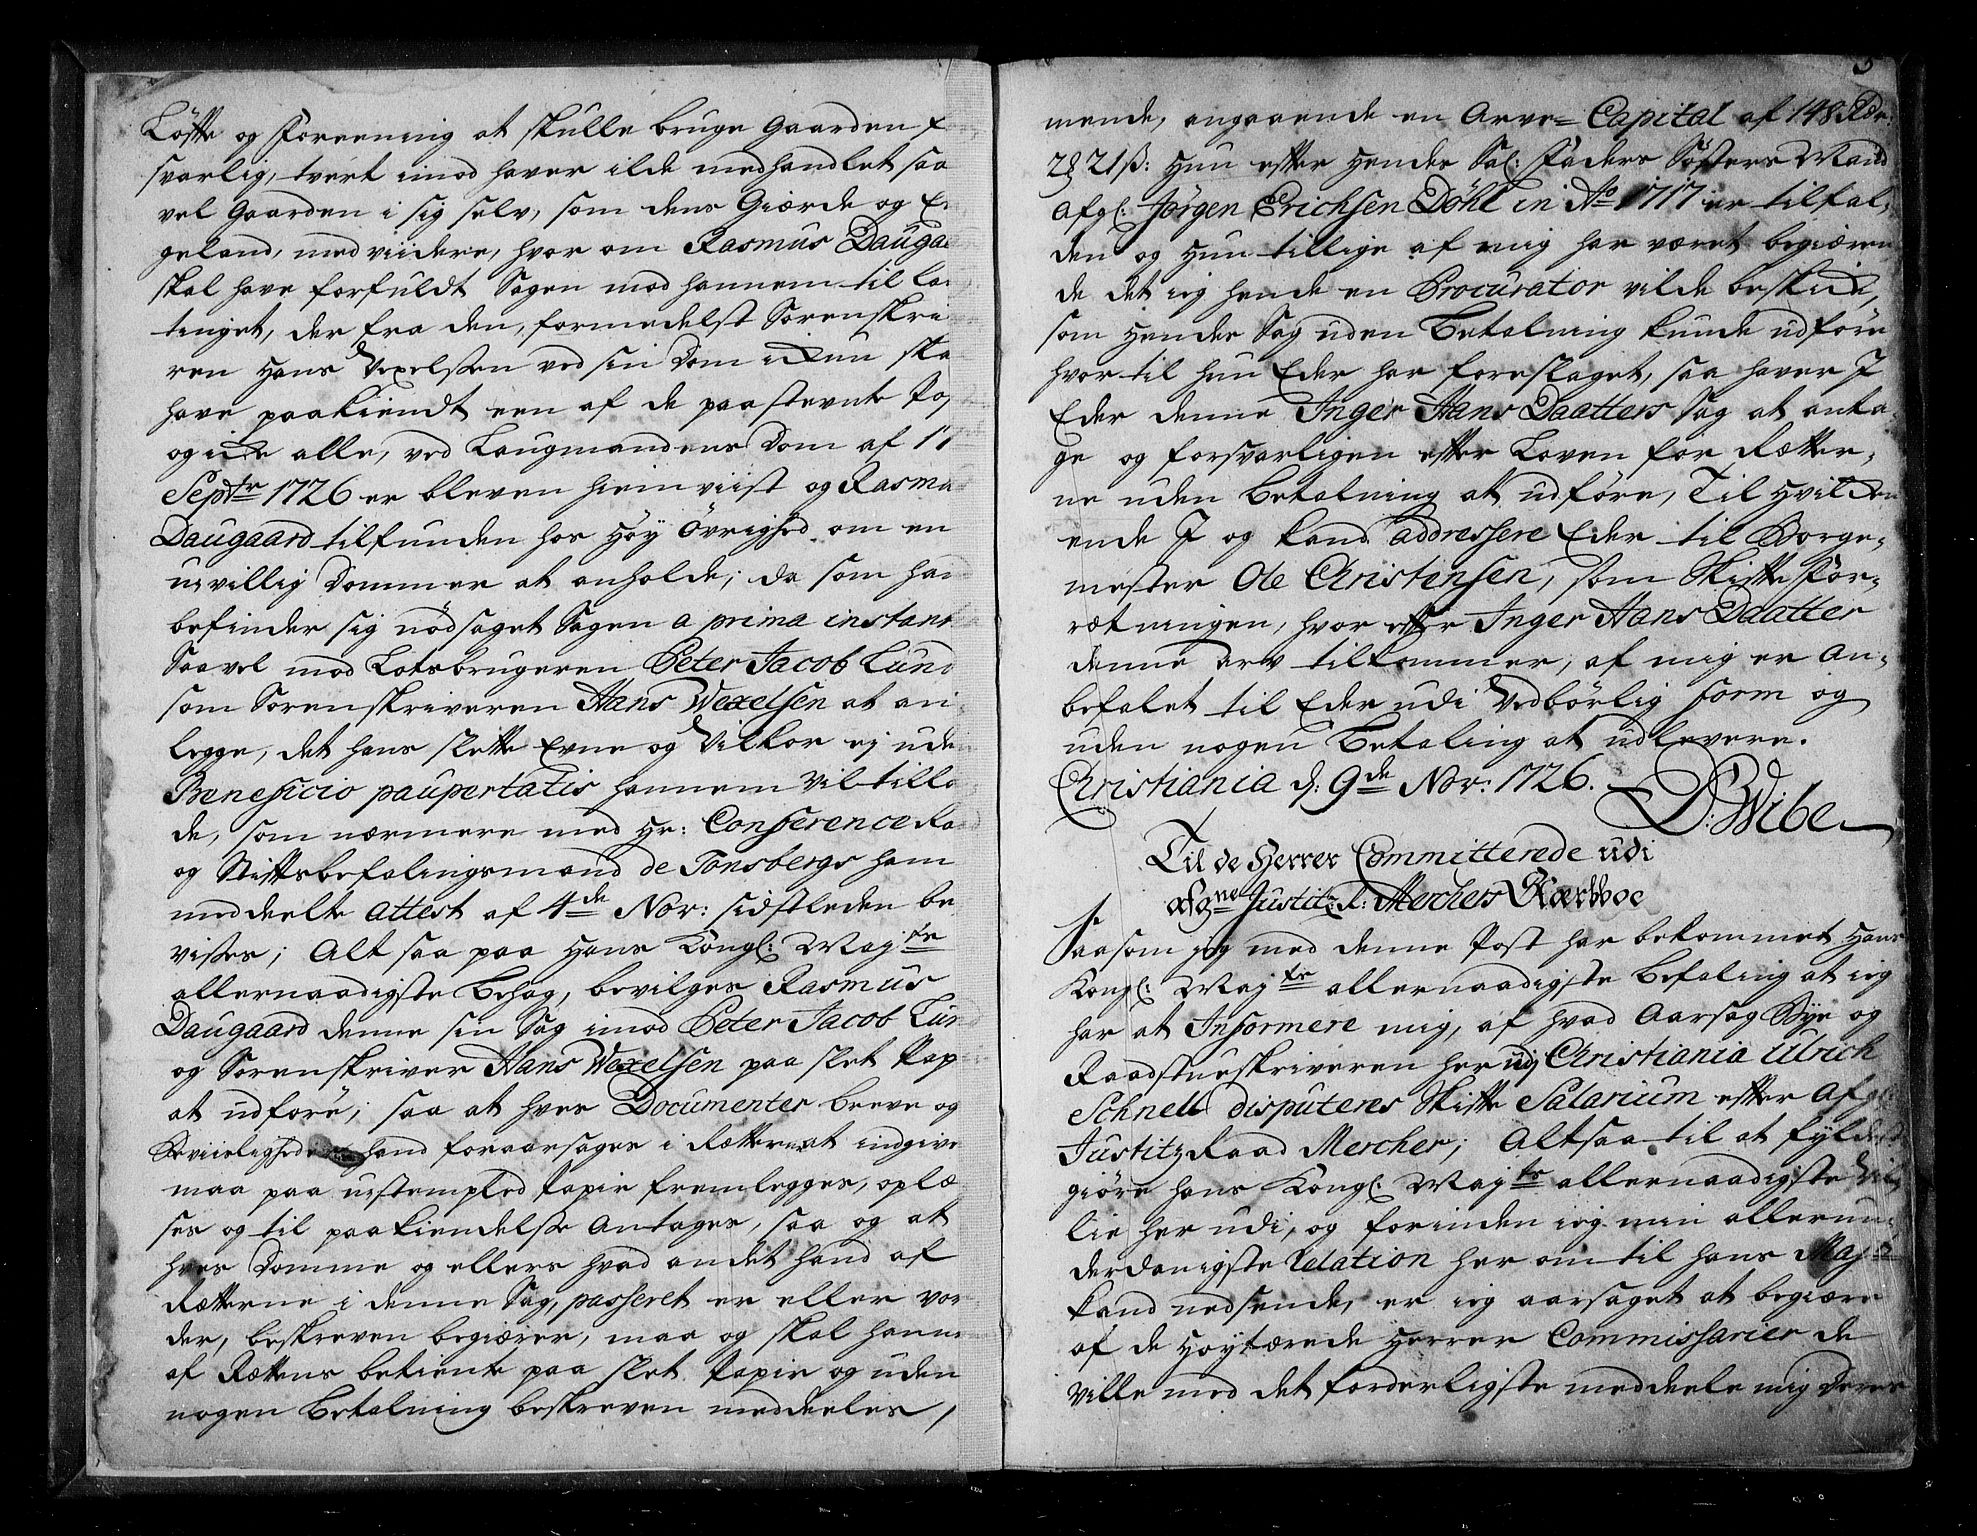 Løfte og Foreening at skulle bruge Gaarden f
svarlig, tvert imod haver ilde medhandlet saa
vel Gaarden i sig selv, som dens Gierde og En
geland, med viidere, hvor om Rasmus Daugaa
skal have forfuldt Sagen mod hannem til La
tinget, der fra den, formedelst Sorenskri
ren Hans Wexelssen ved sin Dom ickun ska
have paakiendt een af de paastevnte Po
og icke alle, ved Laugmandens Dom af 17
Septr 1726 er bleven hiemviist og Rasmu
Daugaard tilfunden hos Høy Øvrighed om en
uvillig Dommer at anholde; da som hand
befinder sig nødsaget Sagen a prima instant
Saavel mod Lotsbrugeren Peter Jacob Lund
som Sorenskriveren Hans Wexelsen at an-
legge, det hans slette Evne og Vilkor ej uden
Beneficio paupertatis hannem vil tilla
de, som nærmere med Hr: Conference Raad
og Stiftsbefalingsmand de Tonsbergs ham
meddeelte Attest af 4de Nov: sidstleden be
vises; Alt saa paa Hans Kongl: Maysts
allernaadigste Behag, bevilges Rasmus
Daugaard denne sin Sag imod Peter Jacob Lund
og Sorenskriver Hans Wexelsen paa slet Pap
at udføre; saa at hves Documenter breve og
Beviisligheder hand foraarsages i Rætterne at indgive
maa paa ustempled Papir fremlegges, oplæ
ses og til paakiendelse Antages, saa og at
hves Domme og ellers hvad andet hand af
Rætterne i denne Sag, passeret er eller vor
der, beskreven begiærer, maa og skal hanne
af Rættens betiente paa slet Papir og uden
nogen Betalning beskreven meddeeles,
5
mende, angaaende en Arve= Capital af 148 Rdr:
2 21 ß: Hun efter Hendes Sal: Faders Søsters Mand
Afgl: Jørgen Erichsen Döhl in Ao 1717 er tilfal-
den og Hun tillige af mig har været begiæren
de det ieg hende en Procurator vilde beskicke,
som Hendes Sag uden Betalning kunde udføre
hvor til hun Eder har foreslaget, saa haver I
Eder denne Inger Hans Daatters Sag at anta-
ge og forsvarligen efter Loven for Rætter-
ne uden Betalning at udføre, Til Hvilcken
ende I og kand addressere Eder til Borge-
mester Ole Christensen, som Skifte For-
rætningen, hvor efter Inger Hans Daatter
denne arv tilkommer, af mig er An-
befalet til Eder udi Vedbørlig form og
uden nogen Betaling at udlevere.
Christiania d: 9de Nov: 1726.
D: Wibe
Til de Herrer Committerede udi
afgne Justitz R: Merchers Stærbboe
Saasom jeg med denne Post har bekommet Hans
Kongl: Maysts allernaadigste Befaling at ieg
har at Informere mig, af hvad Aarsag Bye og
Raadstueskriveren her udj Christiania Ulrich
Schnell disputeres Skifte Salarium efter Afgl:
Justitz Raad Mercher; Altsaa til at fyldest
giøre hans Kongl: Maysts allernaadigste Vil-
lie her udi, og forinden ieg min allerun-
derdanigste Relation her om til hans Mayst
kand nedsende, er ieg aarsaget at begiære
af de Høytærede Herrer Commissarier de
Ville med det forderligste meddeele mig deres